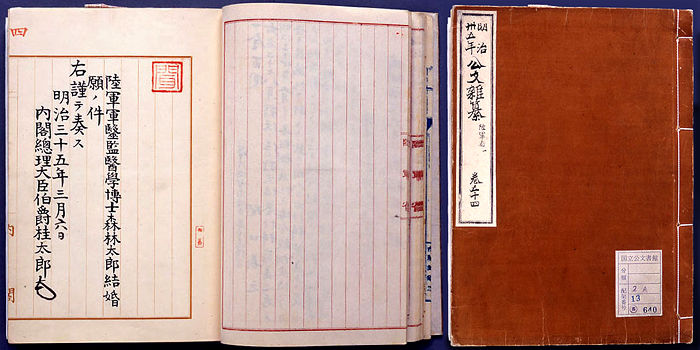 陸軍軍醫監醫學博士森林太郎結婚
願ノ件
右謹テ奏ス
明治三十五年三月六日
内閣總理大臣伯爵桂太郎
聞
四
内閣
陸軍省
明治
卅五年
公文雜纂
陸軍省一
巻三十四
国立公文書館
分類
配架番号
2A
13
640